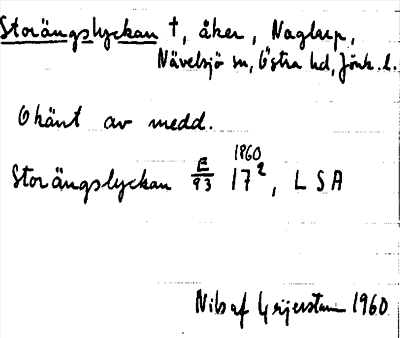 Storängslyckan †, åker, Naglarp,
Nävelsjö sn, Östra hd, Jönk. l.
Okänt av medd.
1860
Storängslyckan E/93 17², LSA
Nils af Geijerstam 1960